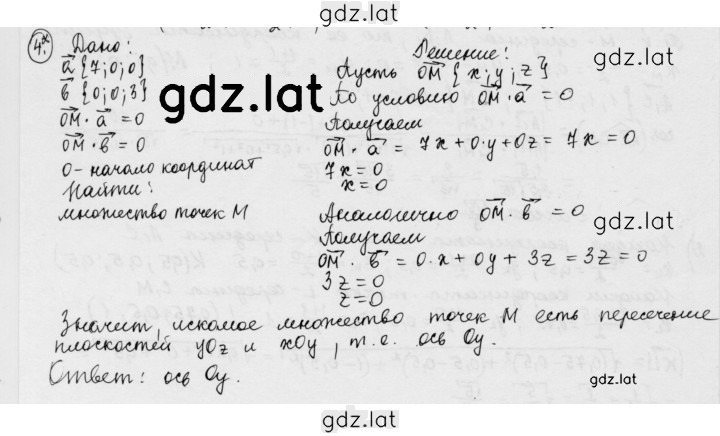 gdz.lat
4*.
Дано:
a {7; 0; 0}
в {0; 0; 3}
OM · a = 0
OM · в = 0
O - начало координат
Найти:
множество точек M
Решение:
Пусть OM {x; y; z}
По условию OM · a = 0
Получаем
OM · a = 7x + 0·y + 0z = 7x = 0
7x = 0
x = 0
Аналогично OM · в = 0
Получаем
OM · в = 0·x + 0y + 3z = 3z = 0
3z = 0
z = 0
Значит, искомое множество точек M есть пересечение
плоскостей yOz и xOy, т.е. ось Oy.
Ответ: ось Oy.
gdz.lat
gdz.lat
gdz.lat
gdz.lat
gdz.lat